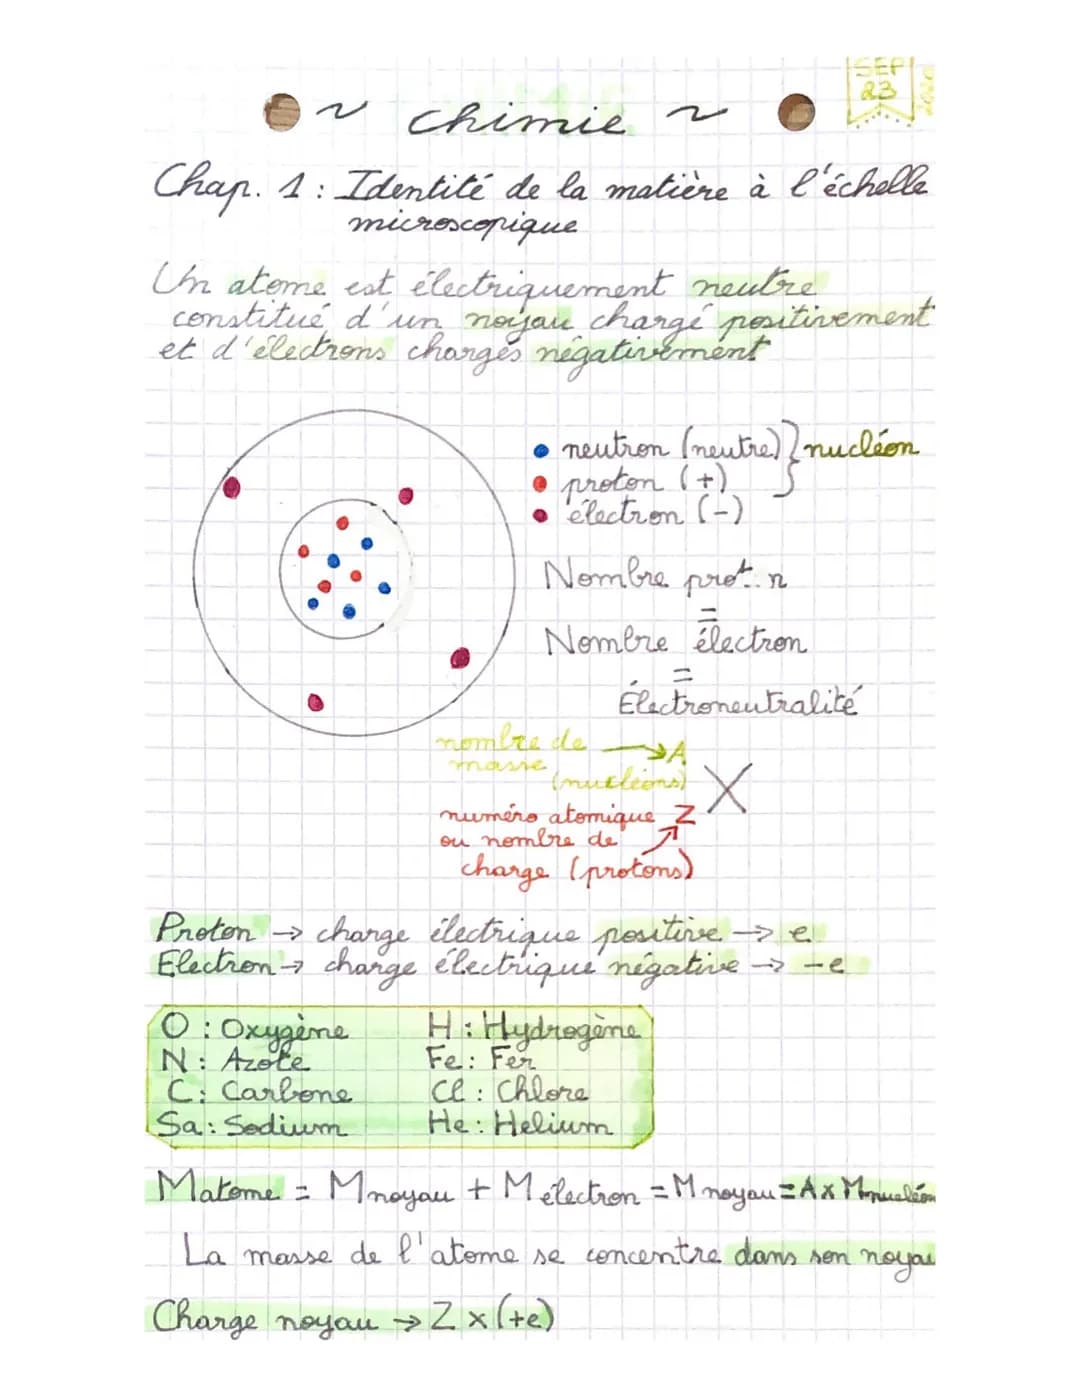 SEP
23
~ chimie ~
Chap. 1 : Identité de la matière à l'échelle
microscopique
Un atome est électriquement neutre
constitué d'un noyau chargé positivement
et d'électrons chargés négativement
neutron (neutre) } nucléon
proton (+)
électron (-)
Nombre prot..n
=
Nombre électron
=
Électroneutralité
nombre de → A
masse
(nucléons)
X
numéro atomique Z
ou nombre de
charge (protons)
Proton → charge électrique positive → e
Electron → charge électrique négative → -e
O : Oxygène H : Hydrogène
N : Azote Fe : Fer
C : Carbone Cl : Chlore
Sa : Sodium He : Helium
Matome = Mnoyau + Mélectron = Mnoyau = A x Mnucléon
La masse de l'atome se concentre dans son noyau
Charge noyau → Z x (+e)